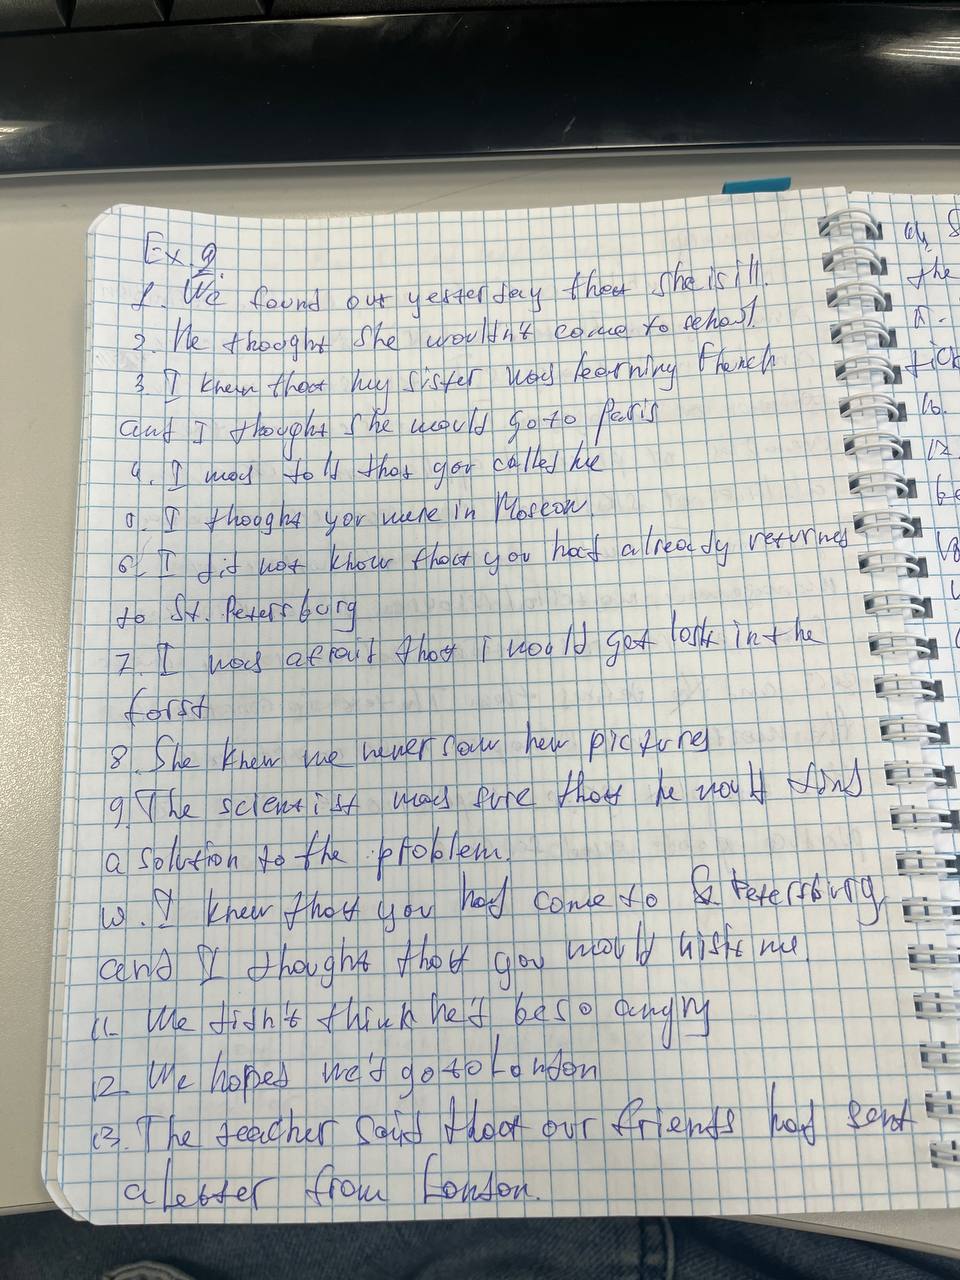 Ex. 9.
1. We found out yesterday that she is ill.
2. He thought she wouldn't come to school.
3. I knew that my sister was learning French
and I thought she would go to Paris
4. I was told that you called me
5. I thought you were in Moscow.
6. I did not know that you had already returned
to St. Petersburg
7. I was afraid that i would get lost in the
forst
8. She knew we never saw her pictures
9. The scientist was sure that he would find
a solution to the problem.
10. I knew that you had come to St Petersburg
and I thought that you would visit me.
11. We didn't think he'd be so angry
12. We hoped we'd go to London
13. The teacher said that our friends had sent
a letter from London.
the